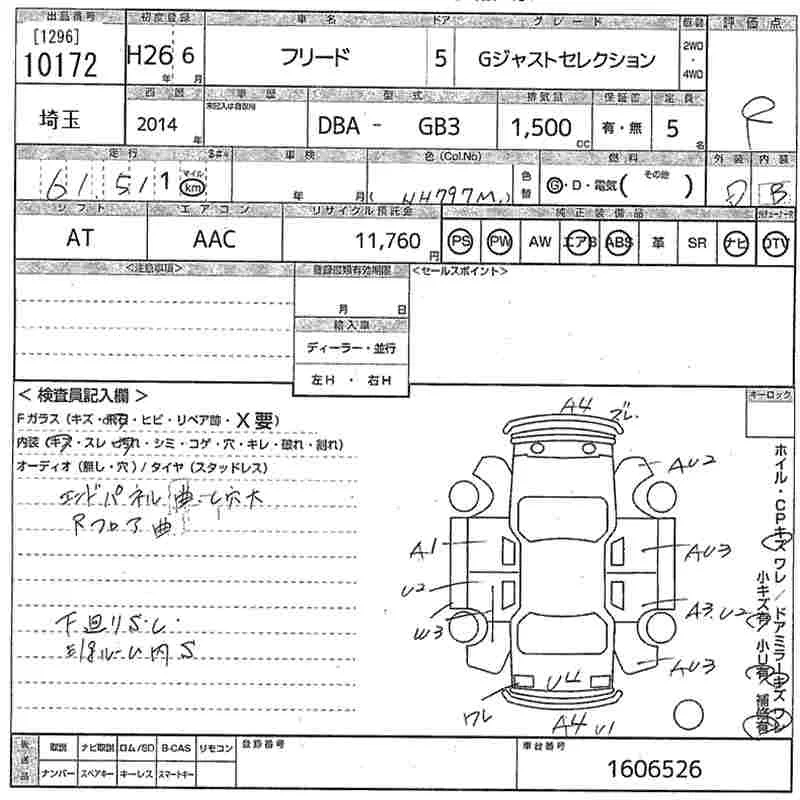 出品番号 初度登録 車名 ドア グレード 駆動 評価点
[1296]
10172 H26年 6月 フリード 5 Gジャストセレクション 2WD・4WD
R
西暦 車歴 型式 排気量 保証書 定員
未記入は自家用
埼玉 2014年 DBA - GB3 1,500cc 有・無 5名
走行 車検 色(Col.No) 燃料 外装 内装
61,511 マイル km 年 月 (NH797M) 色替 G・D・電気( その他 ) D B
シフト エアコン リサイクル預託金 純正装備品
AT AAC 11,760円 PS PW AW エアB ABS 革 SR ナビ DTV
<注意事項> 登録書類有効期限 <セールスポイント>
月 日
輸入車
ディーラー・並行
左H ・ 右H
<検査員記入欄> キーロック
Fガラス(キズ・飛石・ヒビ・リペア跡・X要)
内装(キズ・スレ・汚れ・シミ・コゲ・穴・キレ・破れ・割れ)
オーディオ(無し・穴)/タイヤ(スタッドレス)
エンドパネル曲
穴大
Rフロア曲
下廻りS
内S
A4 ズレ
AU2
A1
AU3
U2
A3.U2
W3
AU3
U4
ワレ
A4 U1
ホイル・CPキズ ワレ/ドアミラーキズ ワレ
小キズ有 小U有 補修有
後送品 取説 ナビ取説 ロム/SD B-CAS リモコン 登録番号 車台番号
ナンバー スペアキー キーレス スマートキー 1606526